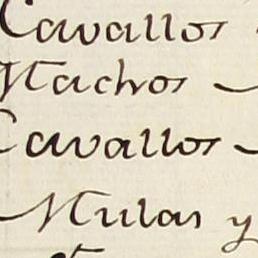 Cavallos
Machos
Cavallos
Mulas y